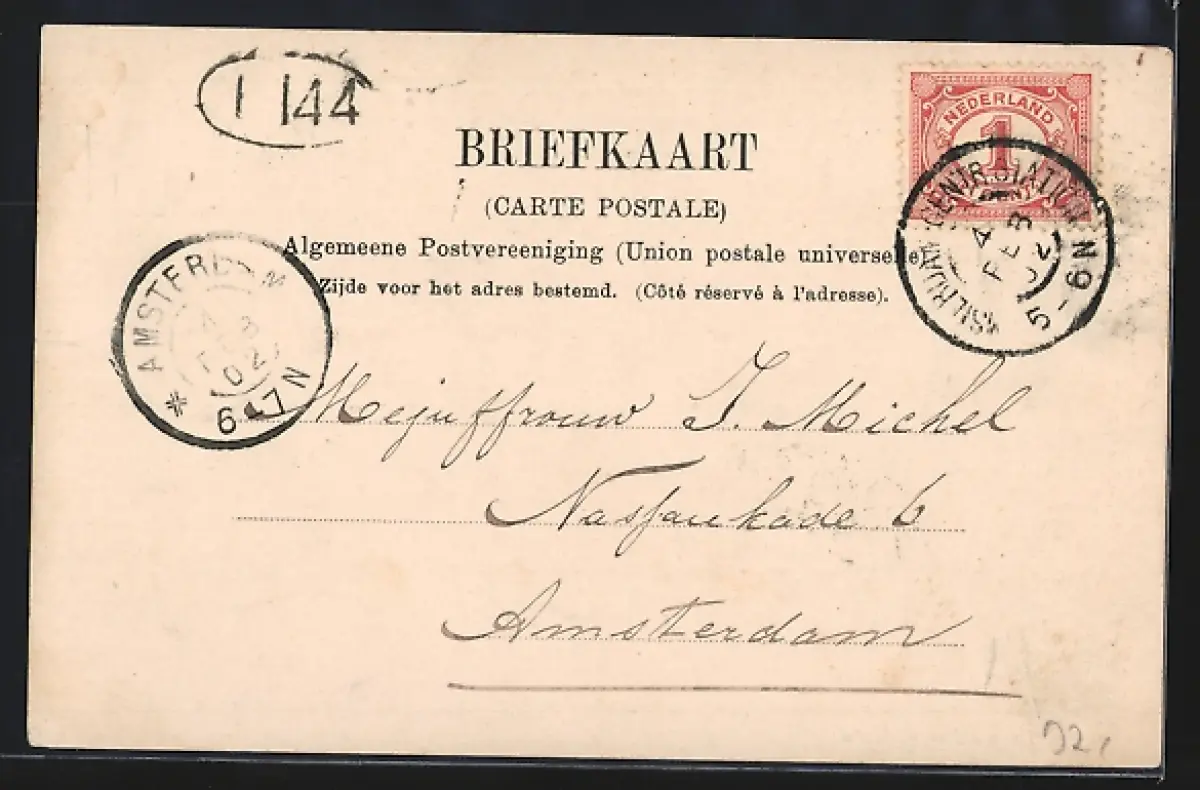 1 144
NEDERLAND
1
CENT
BRIEFKAART
(CARTE POSTALE)
Algemeene Postvereeniging (Union postale universelle)
Zijde voor het adres bestemd. (Côté réservé à l'adresse).
CENTR. STATION
4 FEB 02
5-6N
AMSTERDAM
4 FEB 02
6-7N
Mejuffrouw J. Michel
Nassaukade 6
Amsterdam